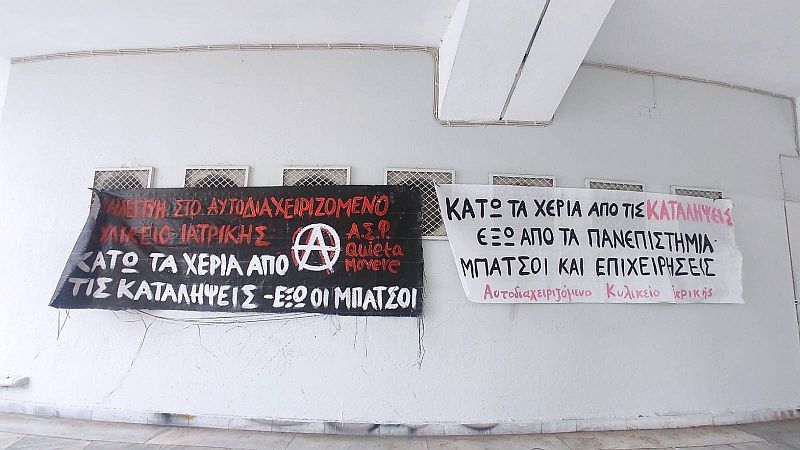 ΑΛΛΗΛΕΓΓΥΗ ΣΤΟ ΑΥΤΟΔΙΑΧΕΙΡΙΖΟΜΕΝΟ
ΚΥΛΙΚΕΙΟ ΙΑΤΡΙΚΗΣ
ΚΑΤΩ ΤΑ ΧΕΡΙΑ ΑΠΟ
ΤΙΣ ΚΑΤΑΛΗΨΕΙΣ - ΕΞΩ ΟΙ ΜΠΑΤΣΟΙ
Α.Σ.Φ.
Quieta
Movere
ΚΑΤΩ ΤΑ ΧΕΡΙΑ ΑΠΟ ΤΙΣ ΚΑΤΑΛΗΨΕΙΣ
ΕΞΩ ΑΠΟ ΤΑ ΠΑΝΕΠΙΣΤΗΜΙΑ
ΜΠΑΤΣΟΙ ΚΑΙ ΕΠΙΧΕΙΡΗΣΕΙΣ
Αυτοδιαχειριζόμενο Κυλικείο Ιατρικής